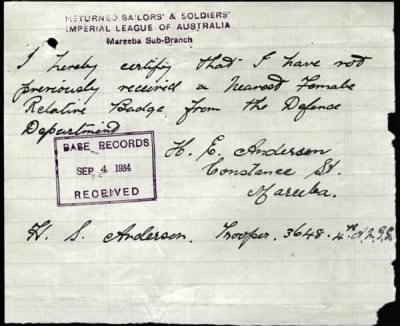 RETURNED SAILORS' & SOLDIERS'
IMPERIAL LEAGUE OF AUSTRALIA
Mareeba Sub-Branch
I hereby certify that I have not
previously received a Nearest Female
Relative Badge from the Defence
Department
BASE RECORDS
SEP 4 1934
RECEIVED
H. E. Anderson
Constance St.
Mareeba.
H. S. Anderson. Trooper. 3648. 4th